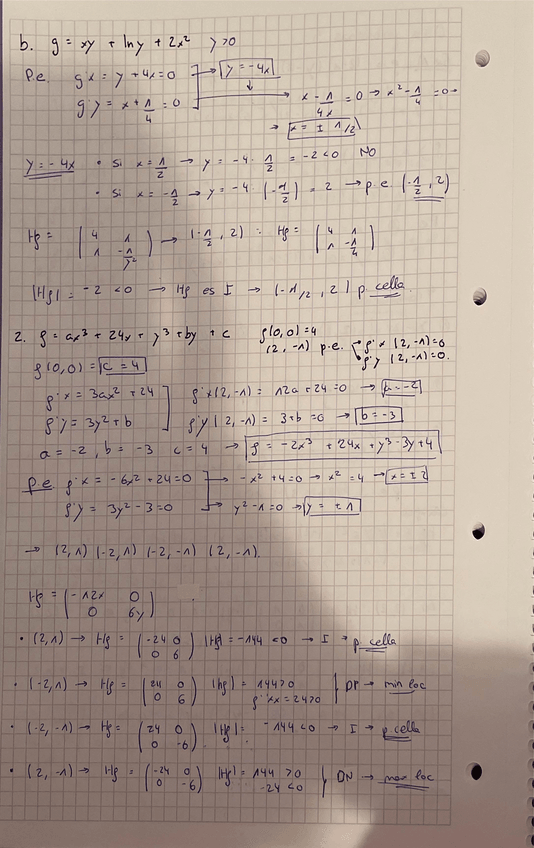 b. g = xy + lny + 2x² y>0
P.e. g'x = y + 4x = 0 → y = -4x
g'y = x + 1/4 = 0 → x - 1/4x = 0 → x² - 1/4 = 0 →
→ x = ± 1/2
y = -4x • Si x = 1/2 → y = -4 · 1/2 = -2 < 0 NO
• Si x = -1/2 → y = -4 · (-1/2) = 2 → p.e. (-1/2, 2)
Hg = (4 1; 1 -1/y²) → (-1/2, 2) : Hg = (4 1; 1 -1/4)
|Hg| = -2 < 0 → Hg es I → (-1/2, 2) p. cella
2. f = ax³ + 24x + y³ + by + c f(0,0) = 4
(2, -1) p.e. f'x (2, -1) = 0
f'y (2, -1) = 0.
f(0,0) = c = 4
f'x = 3ax² + 24 f'x(2, -1) = 12a + 24 = 0 → a = -2
f'y = 3y² + b f'y(2, -1) = 3 + b = 0 → b = -3
a = -2, b = -3 c = 4 → f = -2x³ + 24x + y³ - 3y + 4
p.e f'x = -6x² + 24 = 0 → -x² + 4 = 0 → x² = 4 → x = ± 2
f'y = 3y² - 3 = 0 → y² - 1 = 0 → y = ± 1
→ (2, 1) (-2, 1) (-2, -1) (2, -1).
Hf = (-12x 0; 0 6y)
• (2, 1) → Hf = (-24 0; 0 6) |Hf| = -144 < 0 → I → p. cella
• (-2, 1) → Hf = (24 0; 0 6) |Hf| = 144 > 0 DP → min loc
f''xx = 24 > 0
• (-2, -1) → Hf = (24 0; 0 -6) |Hf| = -144 < 0 → I → p. cella
• (2, -1) → Hf = (-24 0; 0 -6) |Hf| = 144 > 0 DN → max loc
-24 < 0